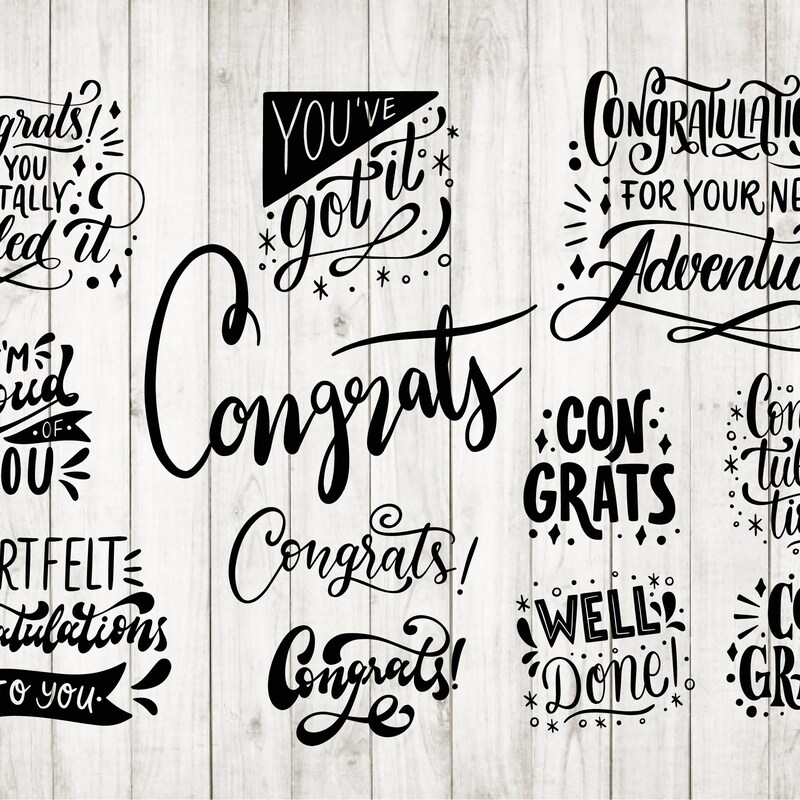 grats!
YOU
TALLY
led it
YOU'VE
got it
CONGRATULATIO
FOR YOUR NE
Adventu
I'M
oud
OF
OU
Congrats
CON
GRATS
Con
tul
ti
RTFELT
atulations
TO YOU
Congrats!
Congrats!
WELL
Done!
CO
GRA